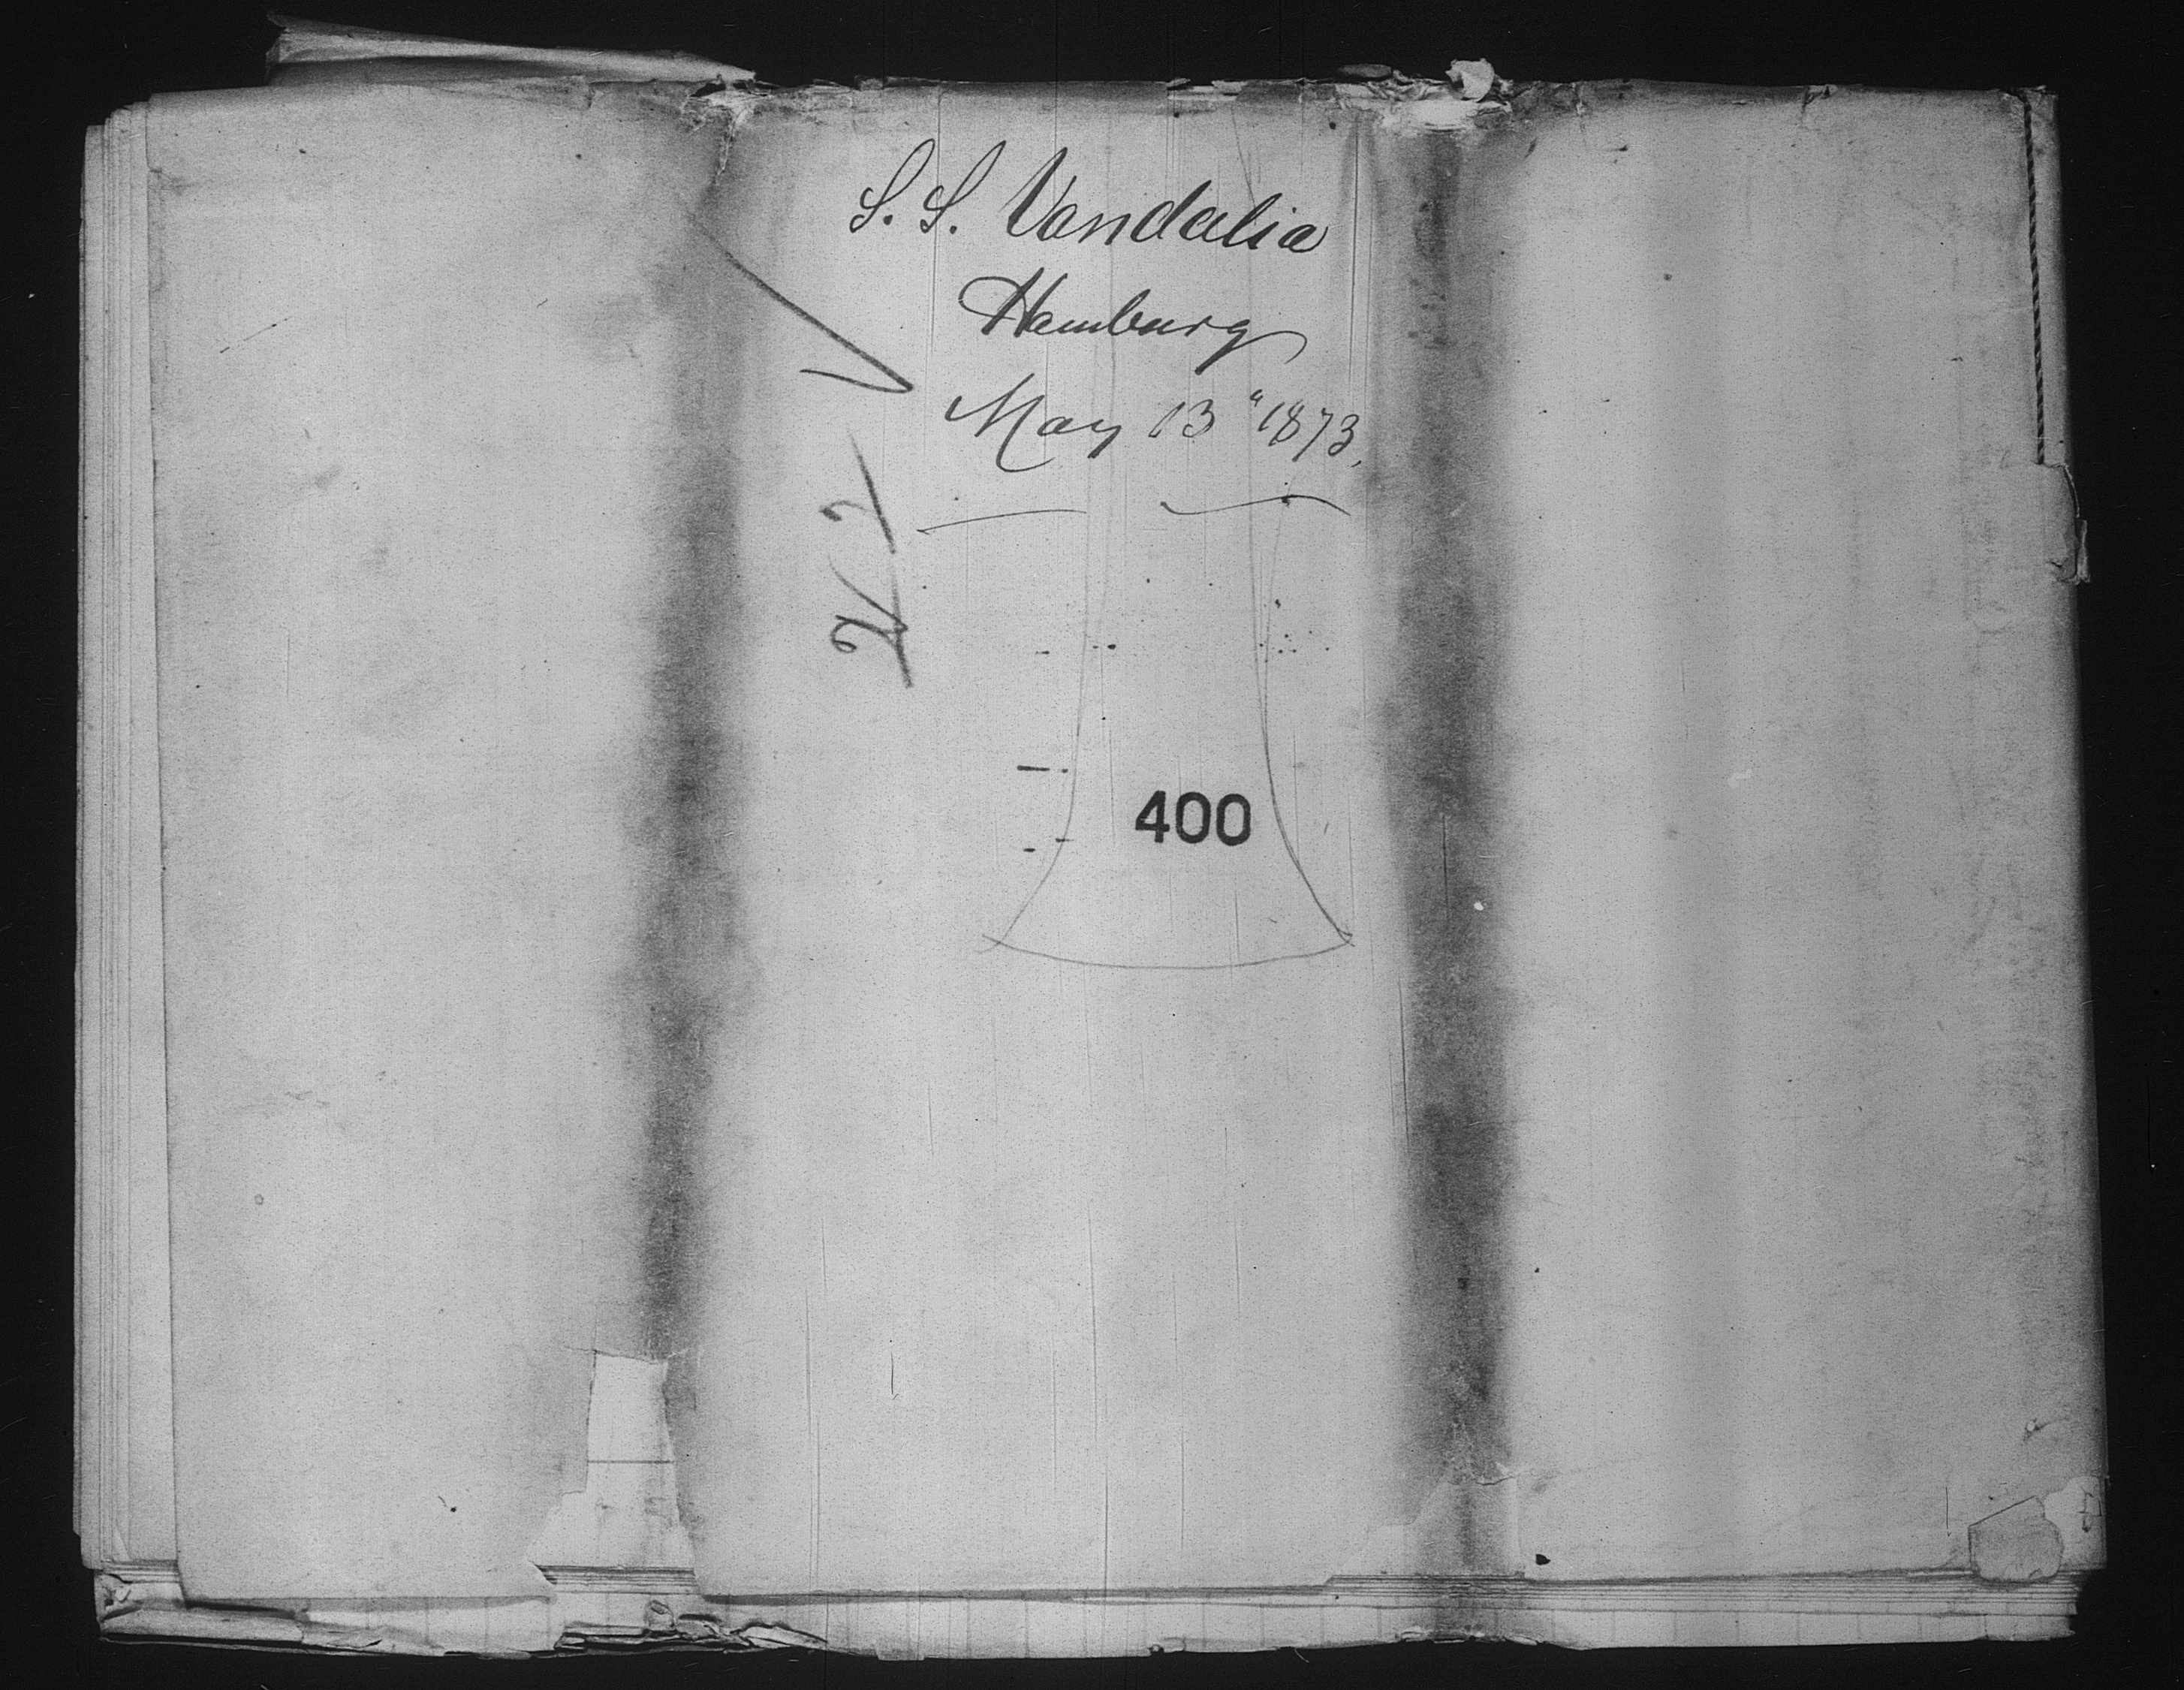 S. S. Vandalia
Hamburg
May 13" 1873.
400